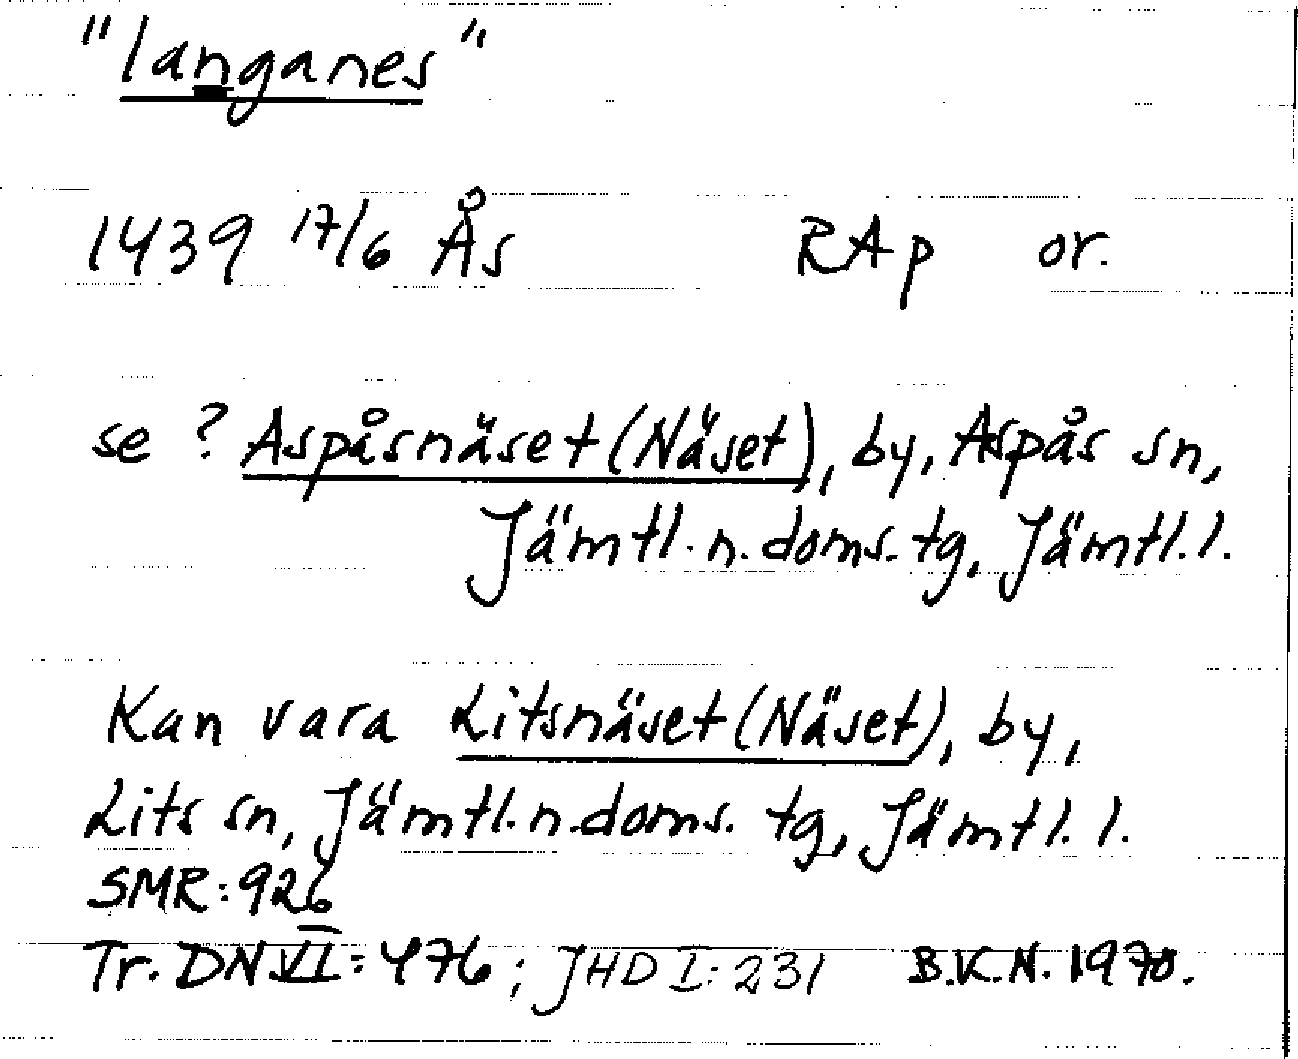 "langanes"
1439 17/6 Ås RAp or.
se ? Aspåsnäset (Näset), by, Aspås sn,
Jämtl. n. doms. tg, Jämtl. l.
Kan vara Litsnäset (Näset), by,
Lits sn, Jämtl. n. doms. tg, Jämtl. l.
SMR: 926
Tr. DN VI: 476; JHD I: 231 B.K.N. 1970.